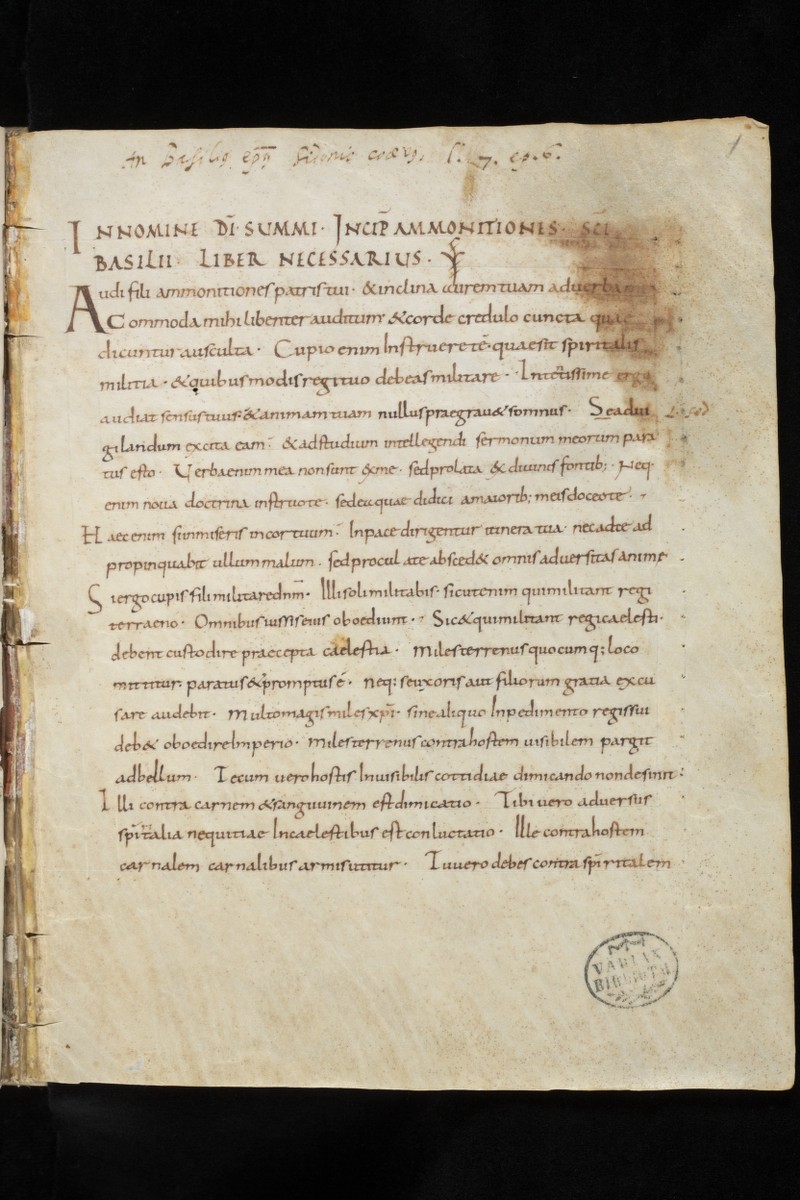 An Basilij ep̄ī l. 7. ep. 6.
1
INNOMINE DĪ SUMMI· INCIP̄ AMMONITIONES· SC̄I
BASILII· LIBER NECESSARIUS·
Audi fili ammonitionespatristui· &inclina auremtuam aduerba
Commodamihi libenter auditum &corde credulo cuncta quae
dicunturausculta· Cupio enim Instruere tē· quaesit spiritalis
militia· &quibusmodisregituo debeasmilitare· Intētissime ergo
audiat sensustuus· &animamtuam nulluspraegrau&somnus· Seadui
gilandum excita eam· &adstudium intellegendi sermonum meorum para
tus esto· Uerbaenim mea nonsunt &me· sedprolata &diuinis fontib;· Neq·
enim noua doctrina instruote· sedeaquae didici amaiorib; meisdoceote·
Haecenim siinmiseris incortuum· Inpace dirigentur itinera tua· necadte ad
propinquabit ullummalum· sedprocul ate absced& omnis aduersitasanime·
Siergocupisfilimilitarednm̄· Illisolimilitabis· sicutenim quimilitant regi
terraeno· Omnibusiussiseius oboediunt· Sic&quimilitant regicaelesti·
debentcustodire praecepta caelestia· Milesterrenusquocumq; loco
mittitur· paratus&promptusē· neq; seuxorisaut filiorum gratia excu
sare audebit· Multomagismilesxp̄i· sinealiquo Inpedimento regissui
deb& oboedireImperio· Milesterrenuscontrahostem uisibilem pargit
adbellum· Tecum uerohostis Inuisibilis cottidiae dimicando nondesinit:
Illi contra carnem &sanguuinem estdimicatio· Tibi uero aduersus
spīritalia nequitiae Incaelestibus estconluctatio· Ille contrahostem
carnalem carnalibusarmisutitur· Tuuero debescontra spīritalem
VADIAN
BIBLIOTH